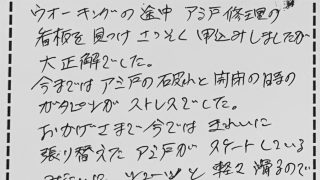 ウオーキングの途中 アミ戸修理の
看板を見つけ さっそく申込みしましたが
大正解でした。
今まではアミ戸の破れと開閉の時の
ガタピシが ストレスでした。
おかげさまで今では きれいに
張り替えた アミ戸が スケートしている
ツーッと軽く滑るので